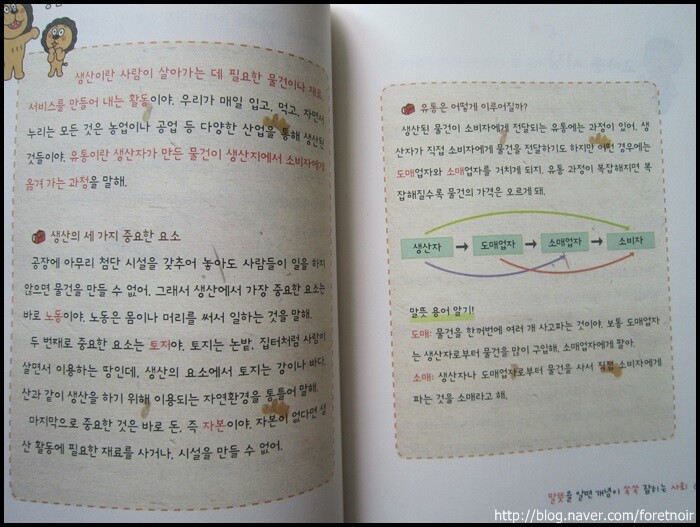 생산이란 사람이 살아가는 데 필요한 물건이나 재료,
서비스를 만들어 내는 활동이야. 우리가 매일 입고, 먹고, 자면서
누리는 모든 것은 농업이나 공업 등 다양한 산업을 통해 생산된
것들이야. 유통이란 생산자가 만든 물건이 생산지에서 소비자에게
옮겨 가는 과정을 말해.
생산의 세 가지 중요한 요소
공장에 아무리 첨단 시설을 갖추어 놓아도 사람들이 일을 하지
않으면 물건을 만들 수 없어. 그래서 생산에서 가장 중요한 요소는
바로 노동이야. 노동은 몸이나 머리를 써서 일하는 것을 말해.
두 번째로 중요한 요소는 토지야. 토지는 논밭, 집터처럼 사람이
살면서 이용하는 땅인데, 생산의 요소에서 토지는 강이나 바다,
산과 같이 생산을 하기 위해 이용되는 자연환경을 통틀어 말해.
마지막으로 중요한 것은 바로 돈, 즉 자본이야. 자본이 없다면 생
산 활동에 필요한 재료를 사거나, 시설을 만들 수 없어.
유통은 어떻게 이루어질까?
생산된 물건이 소비자에게 전달되는 유통에는 과정이 있어. 생
산자가 직접 소비자에게 물건을 전달하기도 하지만 어떤 경우에는
도매업자와 소매업자를 거치게 되지. 유통 과정이 복잡해지면 복
잡해질수록 물건의 가격은 오르게 돼.
생산자 → 도매업자 → 소매업자 → 소비자
말뜻 용어 알기!
도매: 물건을 한꺼번에 여러 개 사고파는 것이야. 보통 도매업자
는 생산자로부터 물건을 많이 구입해, 소매업자에게 팔아.
소매: 생산자나 도매업자로부터 물건을 사서 직접 소비자에게
파는 것을 소매라고 해.
말뜻을 알면 개념이 쏙쏙 잡히는 사회
http://blog.naver.com/foretnoir